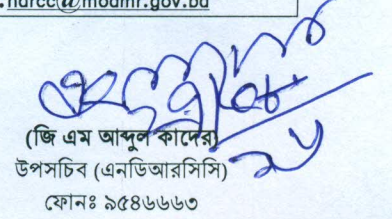 .ndrcc@modmr.gov.bd
(জি এম আব্দুল কাদের)
উপসচিব (এনডিআরসিসি)
ফোনঃ ৯৫৪৬৬৬৩